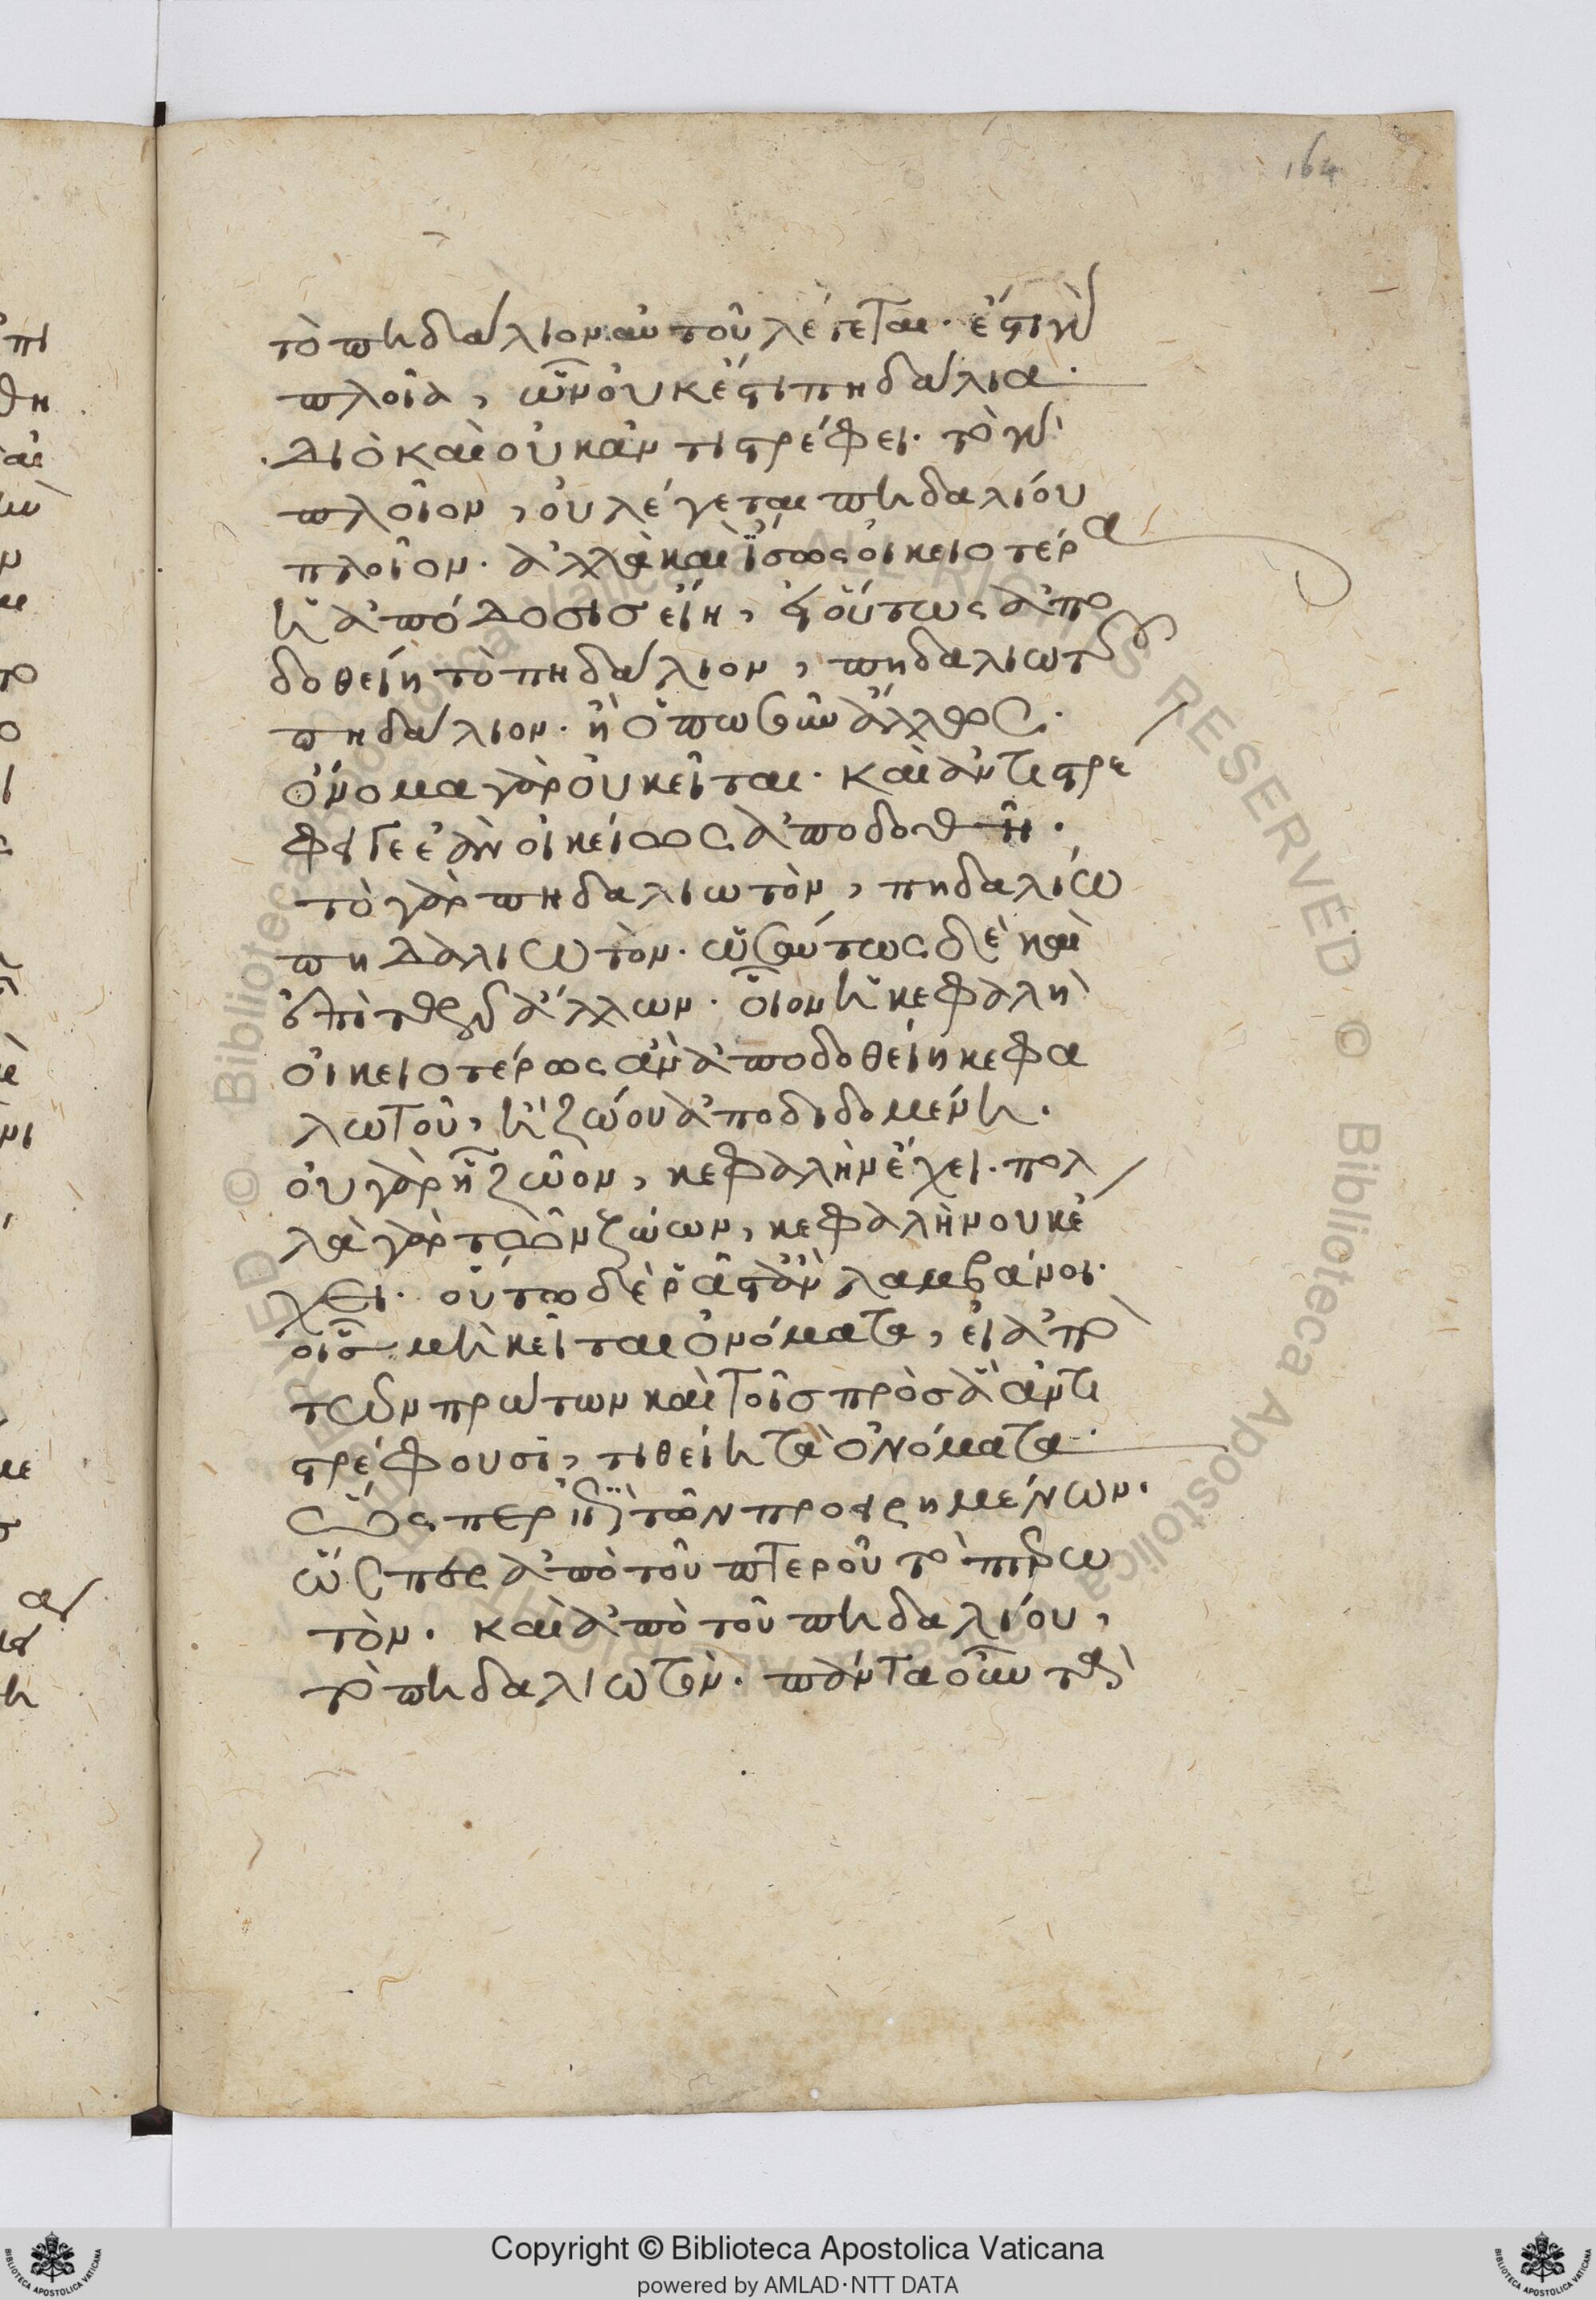 164
τὸ πηδάλιον αὐτοῦ λέγεται· ἔστι γὰρ
πλοῖα, ὧν οὐκ ἔστι πηδάλια·
διὸ καὶ οὐκ ἀντιστρέφει· τὸ γὰρ
πλοῖον, οὐ λέγεται πηδαλίου
πλοῖον· ἀλλὰ καὶ ἴσως οἰκειοτέρα
ἡ ἀπόδοσις εἴη, εἰ οὕτως ἀπο
δοθείη τὸ πηδάλιον, πηδαλιωτοῦ
πηδάλιον· ἢ ὁπωσοῦν ἄλλως·
ὄνομα γὰρ οὐ κεῖται· καὶ ἀντιστρέ
φει γε ἐὰν οἰκείως ἀποδοθῆ·
τὸ γὰρ πηδαλιωτὸν, πηδαλίω
πηδαλιωτόν· ὡσαύτως δὲ καὶ
ἐπὶ τῶν ἄλλων· οἷον ἡ κεφαλὴ
οἰκειοτέρως ἂν ἀποδοθείη κεφα
λωτοῦ, ἢ ζώου ἀποδιδομένη·
οὐ γὰρ ἧ ζῶον, κεφαλὴν ἔχει· πολ
λὰ γὰρ τῶν ζώων, κεφαλὴν οὐκ ἔ
χει· οὕτω δὲ ῥᾶστ' ἂν λαμβάνοι·
οἷς μὴ κεῖται ὀνόματα, εἰ ἀπὸ
τῶν πρώτων καὶ τοῖς πρὸς ἃ ἀντι
στρέφουσι, τιθείη τὰ ὀνόματα·
ὥσπερ ἐπὶ τῶν προειρημένων·
ὥσπερ ἀπὸ τοῦ πτεροῦ τὸ πτερω
τὸν· καὶ ἀπὸ τοῦ πηδαλίου,
τὸ πηδαλιωτόν· πάντα οὖν τὰ
Copyright © Biblioteca Apostolica Vaticana
powered by AMLAD·NTT DATA